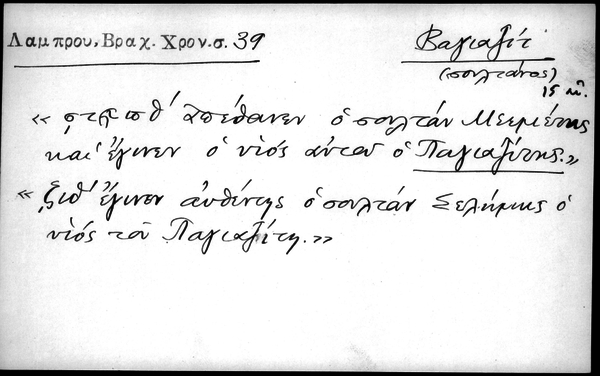 Λαμπρου, Βραχ. Χρον. σ. 39
Βαγιαζίτ
(σουλτάνος)
15 αἰ.
« ἀπέθανεν ὁ σουλτάν Μεεμέτης
καὶ ἔγινεν ὁ υἱός αὐτοῦ ὁ Παγιαζίτης.»
« ἔγινεν αὐθέντης ὁ σουλτάν Σελήμης ὁ
υἱός τοῦ Παγιαζίτη.»